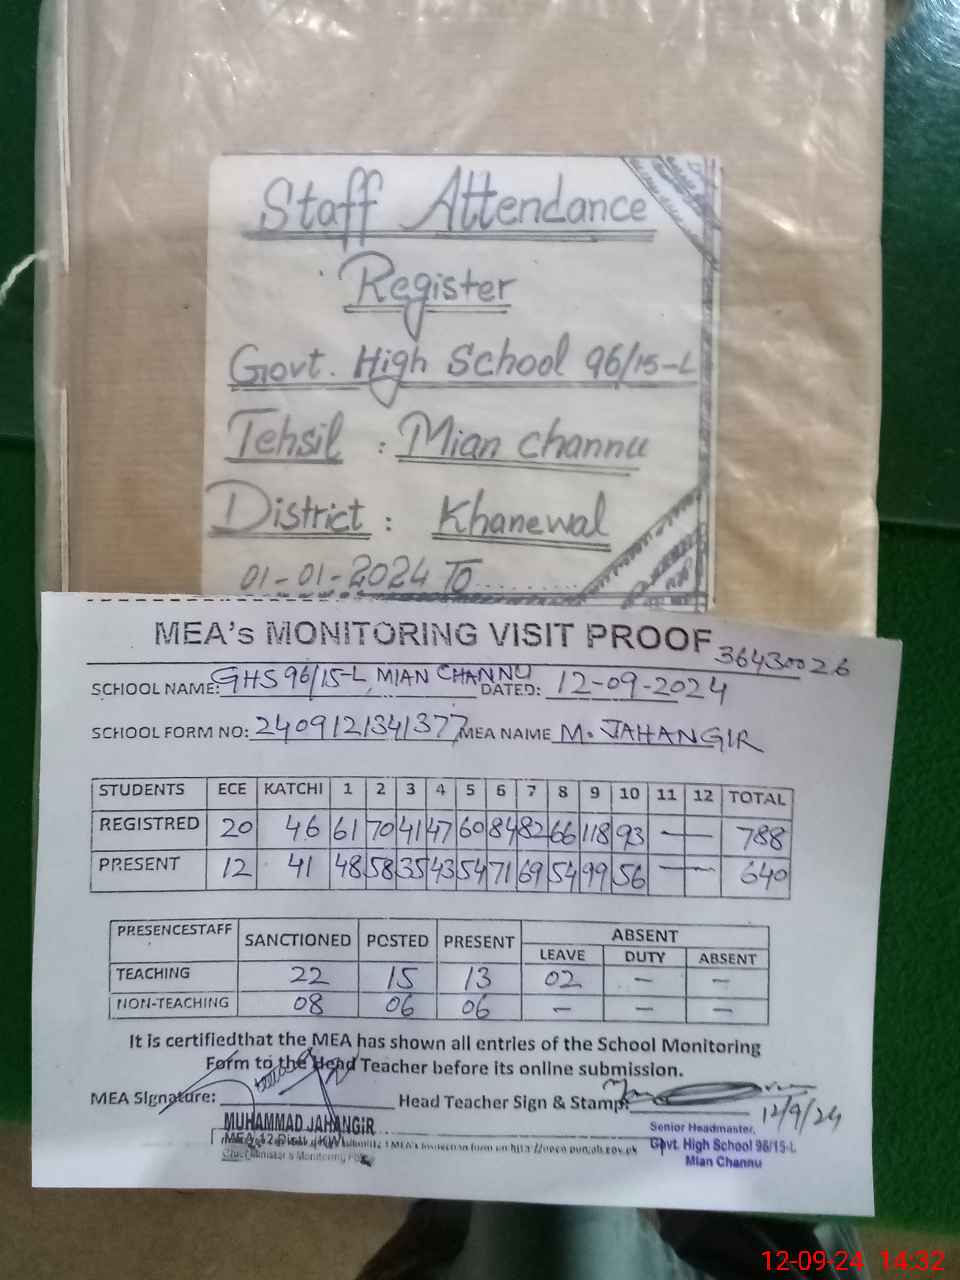 Staff Attendance
Register
Govt. High School 96/15-L
Tehsil : Mian Channu
District : Khanewal
01-01-2024 To..........
MEA's MONITORING VISIT PROOF 36430026
SCHOOL NAME: GHS 96/15-L, MIAN CHANNU DATED: 12-09-2024
SCHOOL FORM NO: 2409121341377 MEA NAME M. JAHANGIR
STUDENTS ECE KATCHI 1 2 3 4 5 6 7 8 9 10 11 12 TOTAL
REGISTRED 20 46 61 70 41 47 60 84 82 66 118 93 — — 788
PRESENT 12 41 48 58 35 43 54 71 69 54 99 56 — — 640
PRESENCESTAFF SANCTIONED POSTED PRESENT ABSENT
LEAVE DUTY ABSENT
TEACHING 22 15 13 02 — —
NON-TEACHING 08 06 06 — — —
It is certifiedthat the MEA has shown all entries of the School Monitoring
Form to the Head Teacher before its online submission.
MEA Signature: Head Teacher Sign & Stamp:
12/9/24
MUHAMMAD JAHANGIR
MEA 12
Chief Minister's Monitoring
Senior Headmaster,
Govt. High School 96/15-L
Mian Channu
12-09-24 14:32